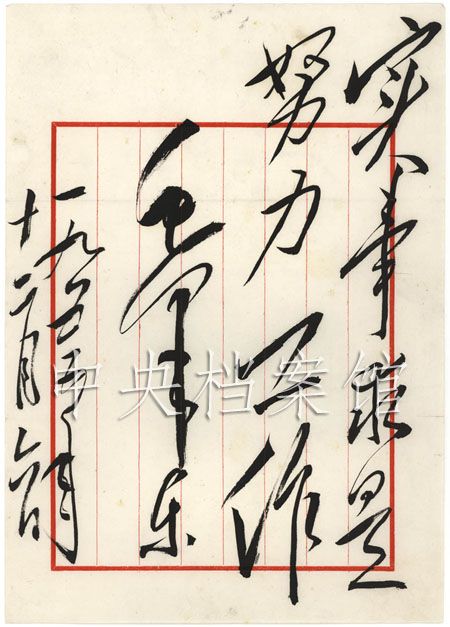 实事求是
努力工作
毛泽东
一九五五年
十二月六日
中央档案馆